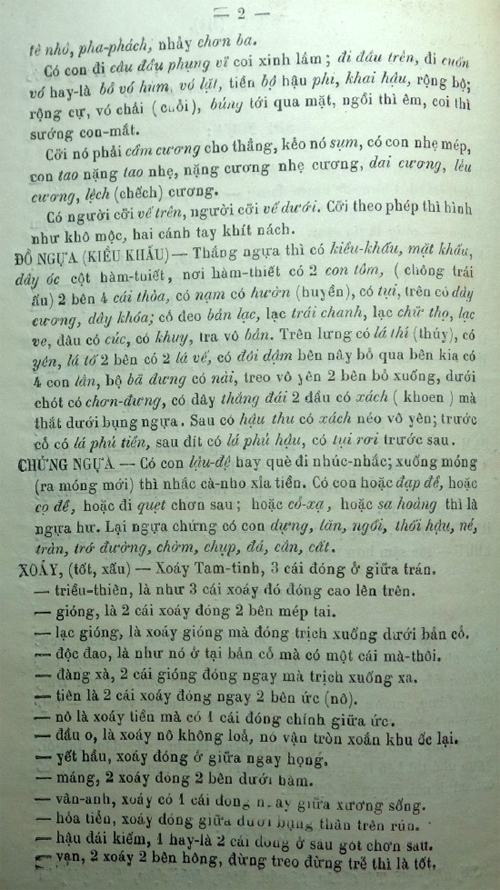 — 2 —
tê nhỏ, pha-phách, nhảy chơn ba.
Có con đi câu đầu phụng vĩ coi xinh lắm; đi đầu trên, đi cuốn
vó hay-là bồ vó hùm, vó lật, tiền bộ hậu phi, khai hậu, rộng bộ;
rộng cự, vó chải (cuỗi), búng tới qua mặt, ngồi thì êm, coi thì
sướng con-mắt.
Cỡi nó phải cầm cương cho thẳng, kẻo nó sụm, có con nhẹ mép,
con tao nặng tao nhẹ, nặng cương nhẹ cương, dai cương, lều
cương, lệch (chếch) cương.
Có người cỡi vế trên, người cỡi vế dưới. Cỡi theo phép thì hình
như khô mộc, hai cánh tay khít nách.
ĐỒ NGỰA (KIỀU KHẤU) — Thắng ngựa thì có kiều-khấu, mặt khấu,
dây óc cột hàm-thiết, nơi hàm-thiết có 2 con tôm, (chông trái
ấu) 2 bên 4 cái thỏa, có nạm có hườn (huyền), có tụi, trên có dây
cương, dây khóa; cổ đeo bản lạc, lạc trái chanh, lạc chữ thọ, lạc
ve, đầu có cúc, có khuy, tra vô bản. Trên lưng có lá thí (thúy), có
yên, lá tố 2 bên có 2 lá vế, có đôi dậm bên nây bỏ qua bên kia có
4 con lăn, bộ bã đưng có nài, treo vô yên 2 bên bỏ xuống, dưới
chót có chơn-đưng, có dây thắng đái 2 đầu có xách (khoen) mà
thắt dưới bụng ngựa. Sau có hậu thu có xách néo vô yên; trước
cổ có lá phủ tiền, sau đít có lá phủ hậu, có tụi rơi trước sau.
CHỨNG NGỰA — Có con lậu-đề hay què đi nhúc-nhắc; xuống móng
(ra móng mới) thì nhắc cà-nho xỉa tiền. Có con hoặc đạp đề, hoặc
cọ đề, hoặc đi quẹt chơn sau; hoặc cổ-xạ, hoặc sa hoàng thì là
ngựa hư. Lại ngựa chứng có con dựng, lăn, ngồi, thối hậu, né,
tràn, trở đường, chờm, chụp, đá, cắn, cất.
XOÁY, (tốt, xấu) — Xoáy Tam-tinh, 3 cái đóng ở giữa trán.
— triều-thiên, là như 3 cái xoáy đó đóng cao lên trên.
— gióng, là 2 cái xoáy đóng 2 bên mép tai.
— lạc gióng, là xoáy gióng mà đóng trịch xuống dưới bản cổ.
— độc đao, là như nó ở tại bản cổ mà có một cái mà-thôi.
— đàng xà, 2 cái gióng đóng ngay mà trịch xuống xa.
— tiền là 2 cái xoáy đóng ngay 2 bên ức (nô).
— nô là xoáy tiền mà có 1 cái đóng chính giữa ức.
— đầu o, là xoáy nô không loả, nó vận tròn xoắn khu ốc lại.
— yết hầu, xoáy đóng ở giữa ngay họng.
— máng, 2 xoáy đóng 2 bên dưới hàm.
— vân-anh, xoáy có 1 cái đóng ngay giữa xương sống.
— hỏa tiễn, xoáy đóng giữa dưới bụng thân trên rún.
— hậu đái kiếm, 1 hay-là 2 cái đóng ở sau gót chơn sau.
— vạn, 2 xoáy 2 bên hông, đừng treo đừng trể thì là tốt.